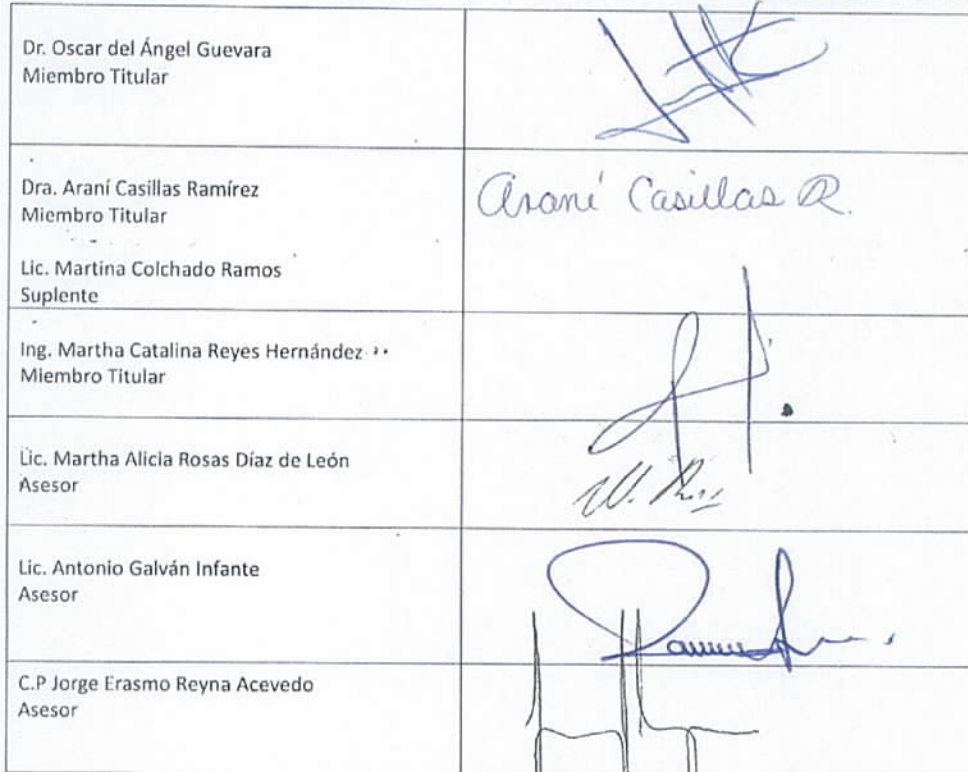 Dr. Oscar del Ángel Guevara
Miembro Titular
Dra. Araní Casillas Ramírez
Miembro Titular
Araní Casillas R.
Lic. Martina Colchado Ramos
Suplente
Ing. Martha Catalina Reyes Hernández
Miembro Titular
Lic. Martha Alicia Rosas Díaz de León
Asesor
Lic. Antonio Galván Infante
Asesor
C.P Jorge Erasmo Reyna Acevedo
Asesor